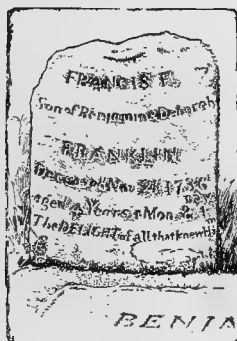 FRANCIS F.
Son of Benjamin & Deborah
FRANKLIN
Deceased Nov 21 1736
aged 4 Years 1 Mon
Days
The DELIGHT of all that knew Him
BENJA